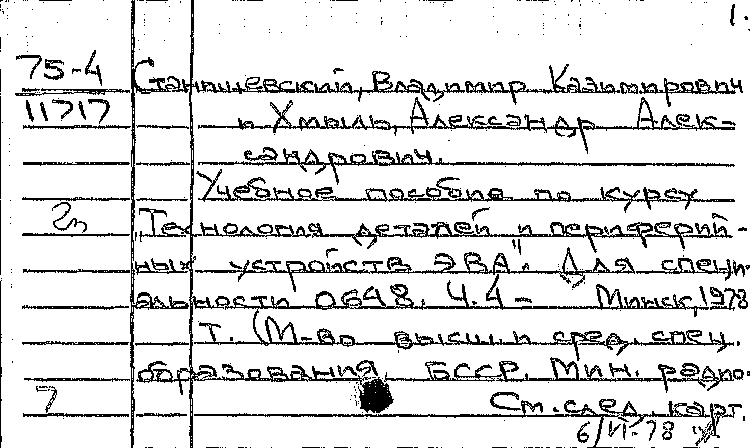 1.
75-4 Станишевский, Владимир Казимирович
11717 и Хмыль, Александр Алек-
сандрович.
Учебное пособие по курсу
2п "Технология деталей и периферий-
ных устройств ЭВА". Для специ-
альности 0648. Ч.4 - Минск, 1978
т. (М-во высш. и сред. спец.
образования БССР. Мин. радио-
7 См. след. карт.
6/VI-78